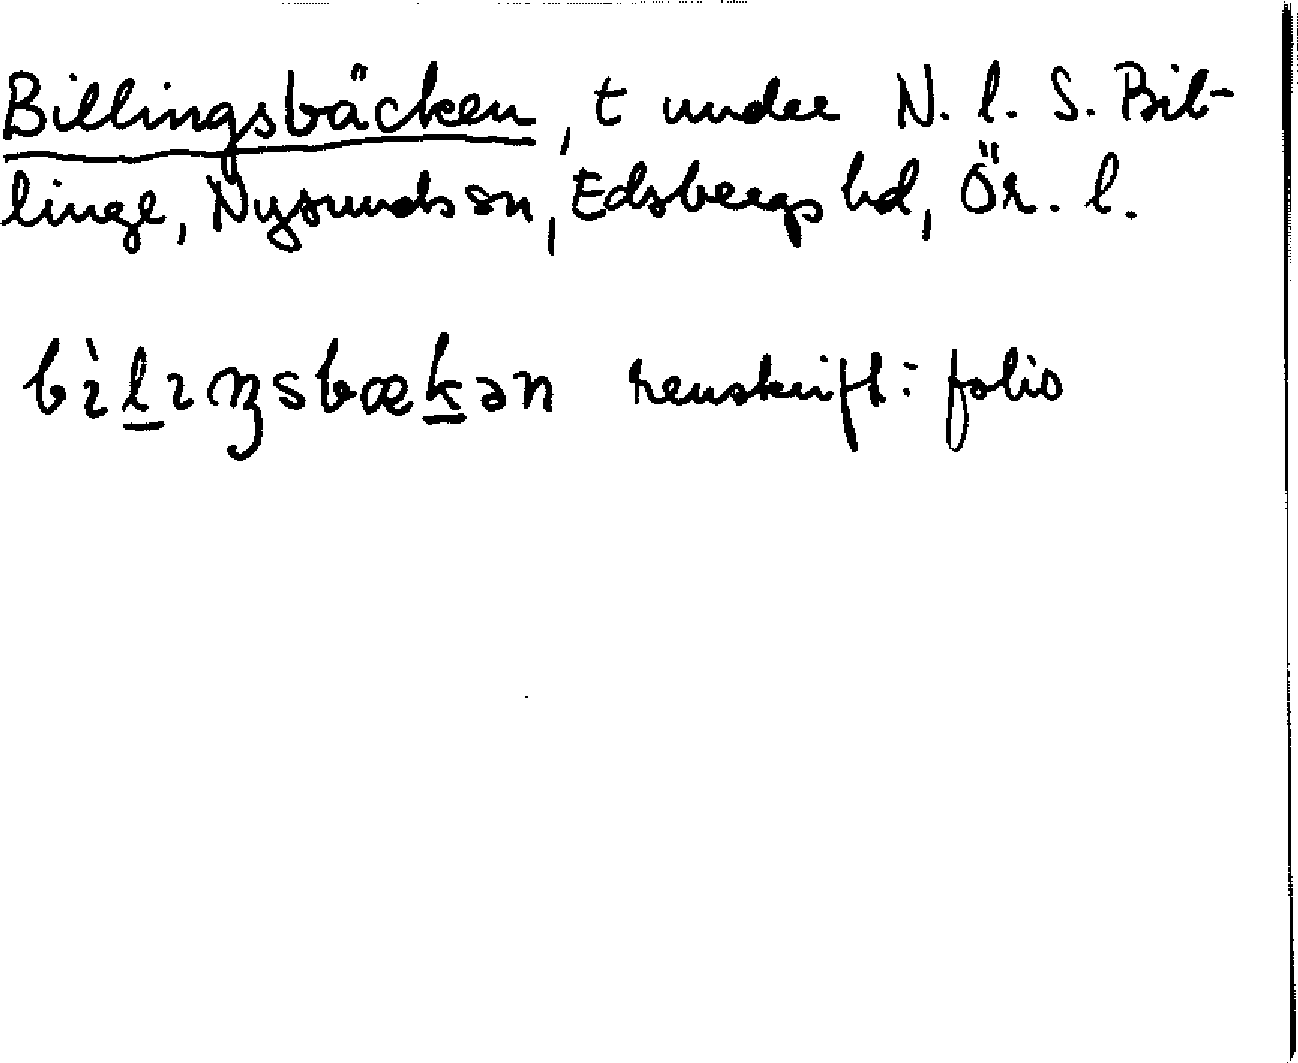 Billingsbäcken, t under N. l. S. Bil-
linge, Nysunds sn, Edsbergs hd, Ör. l.
bìlıŋsbækən renskrift: folio